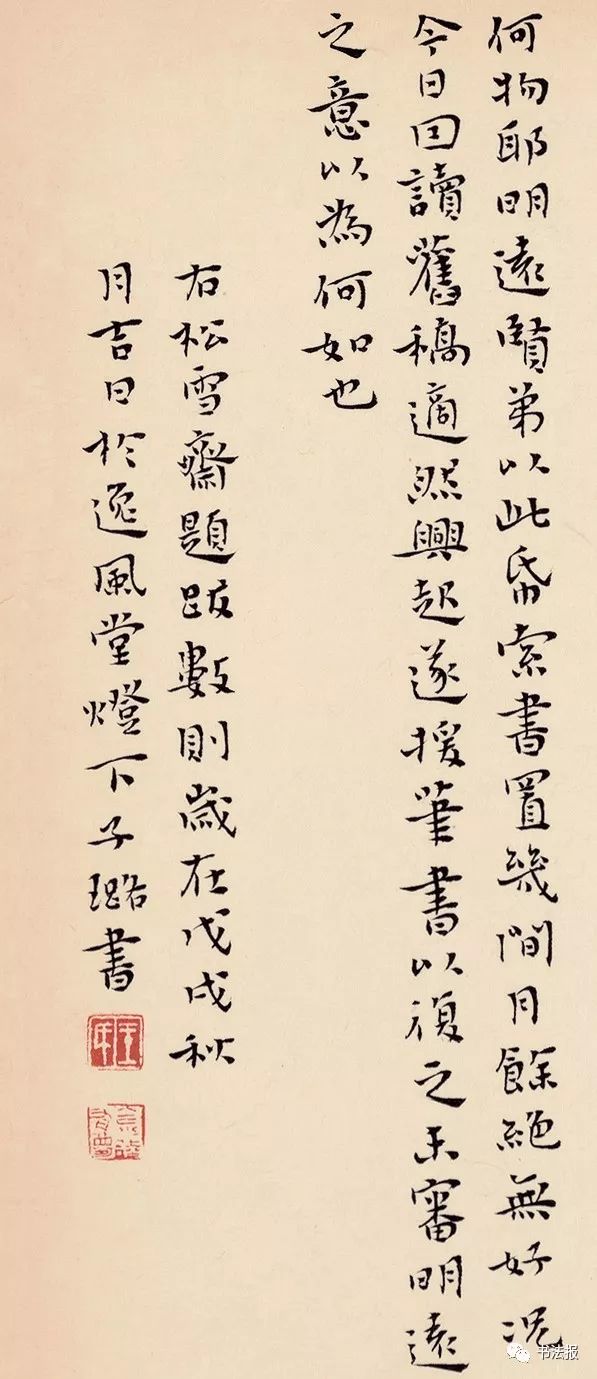 何物耶明遠賢弟以此帋索書置幾間月餘絕無好況
今日因讀舊稿適然興起遂援筆書以復之未審明遠
之意以為何如也
右松雪齋題跋數則歲在戊戌秋
月吉日於逸風堂燈下子璐書
书法报